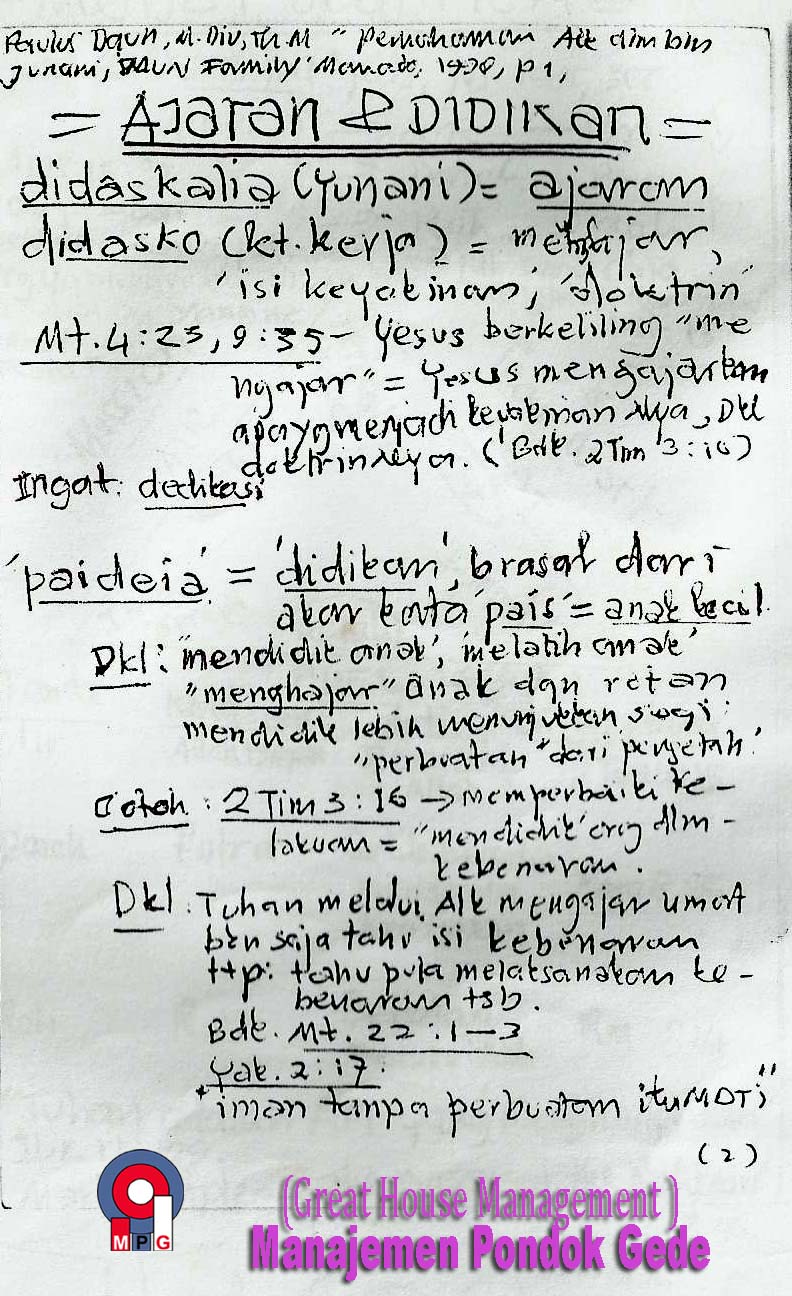 Paulus Daun, M.Div, Th.M "Pemahaman Alk dlm bhs
Junani, DAUN Family Manado, 1998, p 1,
= AJaran & DIDIKan =
didaskalia (Yunani) = ajaran
didasko (kt. kerja) = mengajar,
'isi keyakinan', 'doktrin'
Mt. 4:23, 9:35 - Yesus berkeliling "me
ngajar" = Yesus mengajarkan
apa yg menjadi keyakinan Nya, Dkl
doktrin Nya. (Bdk. 2 Tim 3:10)
Ingat: dedikasi
'paideia' = 'didikan', brasal dari
akar kata 'pais' = anak kecil.
Dkl: "mendidik anak", 'melatih anak'
"menghajar" anak dgn rotan
mendidik lebih menunjukkan segi
"perbuatan" dari
Cotoh: 2 Tim 3:16 -> memperbaiki ke-
lakuan = "mendidik" org dlm
kebenaran.
Dkl. Tuhan melalui Alk mengajar umat
bkn saja tahu isi kebenaran
ttp: tahu pula melaksanakan ke-
benaran tsb.
Bdk. Mt. 22:1-3
Yak. 2:17.
"iman tanpa perbuatan itu MATi"
(2)
MPG
(Great House Management)
Manajemen Pondok Gede